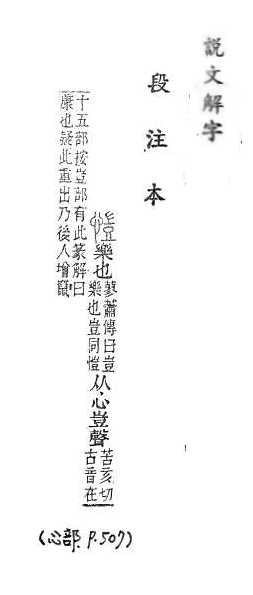 說文解字
段注本
愷樂也蓼蕭傳曰豈樂也豈同愷从心豈聲苦亥切古音在
十五部按豈部有此篆解曰
康也疑此重出乃後人增竄
(心部. P.507)